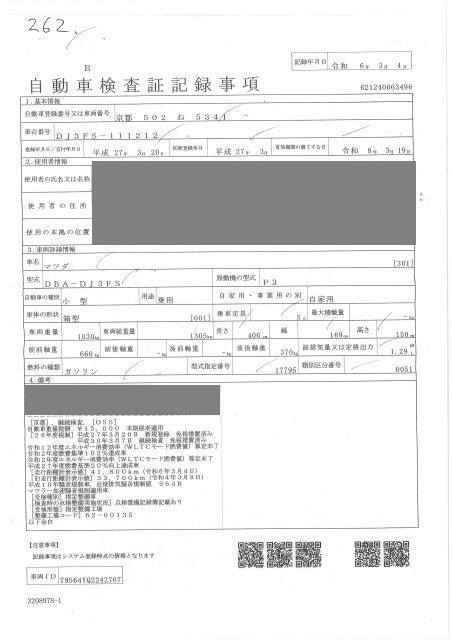 262.
記録年月日 令和 6年 3月 4日
B
自動車検査証記録事項
621240063496
1.基本情報
自動車登録番号又は車両番号 京都 502 ね 5341
車台番号 DJ3FS-111212
登録年月日/交付年月日 平成 27年 3月 20日 初度登録年月 平成 27年 3月 有効期間の満了する日 令和 8年 3月 19日
2.使用者情報
使用者の氏名又は名称
使用者の住所
使用の本拠の位置
3.車両詳細情報
車名 マツダ [301]
型式 DBA-DJ3FS 原動機の型式 P3
自動車の種別 小型 用途 乗用 自家用・事業用の別 自家用
車体の形状 箱型 [001] 乗車定員 5人 最大積載量 -kg
車両重量 1030kg 車両総重量 1305kg 長さ 406cm 幅 169cm 高さ 150cm
前前軸重 660kg 前後軸重 -kg 後前軸重 -kg 後後軸重 370kg 総排気量又は定格出力 1.29L
燃料の種類 ガソリン 型式指定番号 17795 類別区分番号 0051
4.備考
[京都],継続検査,[OSS]
自動車重量税額 ¥15,000 本則税率適用
[26年度税制]平成27年3月20日 新規登録 免税措置済み
平成30年3月7日 継続検査 免税措置済み
令和12年度エネルギー消費効率(WLTCモード燃費値)算定未了
令和2年度燃費基準102%達成車
令和2年度エネルギー消費効率(WLTCモード燃費値)算定未了
平成27年度燃費基準20%向上達成車
[走行距離計表示値]41,800km(令和6年3月4日)
[旧走行距離計表示値]33,700km(令和4年3月8日)
平成10年騒音規制車,近接排気騒音規制値 96dB
マフラー加速騒音規制適用車
[受検種別]指定整備車
[検査時の点検整備実施状況]点検整備記録簿記載あり
[受検形態]指定整備工場
[整備工場コード]62-00135
以下余白
【注意事項】
記録事項はシステム登録時点の情報となります
車両ID T9564YQ2242707
3208978-1